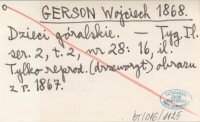 GERSON Wojciech 1868.
Dzieci góralskie. — Tyg. Il.
ser. 2, t. 2, nr 28: 16, il.
Tylko reprod. (drzeworyt) obrazu
z r. 1867.